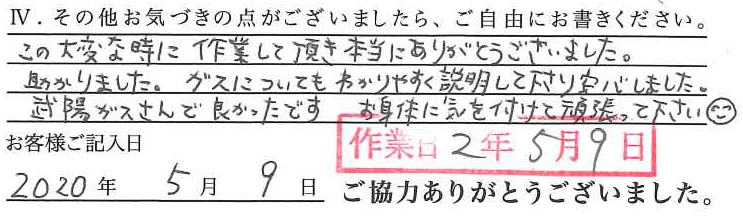 Ⅳ．その他お気づきの点がございましたら、ご自由にお書きください。
この大変な時に作業して頂き本当にありがとうございました。
助かりました。ガスについてもわかりやすく説明して下り安心しました。
武陽ガスさんで良かったです　お身体に気を付けて頑張って下さい☺
お客様ご記入日
作業日 2年5月9日
2020年 5月 9日 ご協力ありがとうございました。